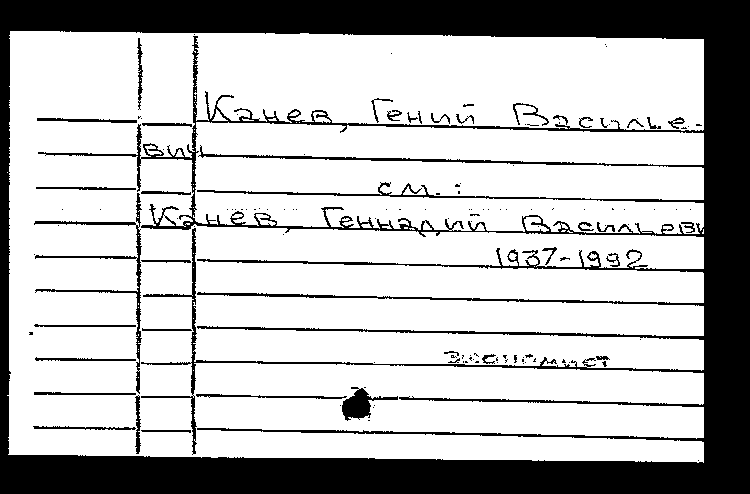 Канев, Гений Василье-
вич
см.:
Канев, Геннадий Васильеви
1937-1992
экономист